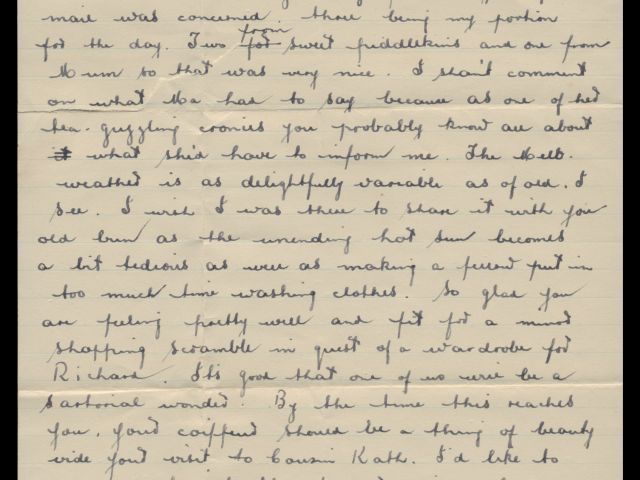 mail was concerned, three being my portion
for the day. Two for from sweet fuddlekins and one from
Mum so that was very nice. I shan't comment
on what Ma has to say because as one of her
tea-guzzling cronies you probably know all about
it what she'd have to inform me. The Melb.
weather is as delightfully variable as of old. I
see. I wish I was there to share it with you
old bun as the unending hot sun becomes
a bit tedious as well as making a fellow put in
too much time washing clothes. So glad you
are feeling pretty well and fit for a minor
shopping scramble in quest of a wardrobe for
Richard. It's good that one of us will be a
sartorial wonder. By the time this reaches
you, your coiffeur should be a thing of beauty
vide your visit to Cousin Kath. I'd like to